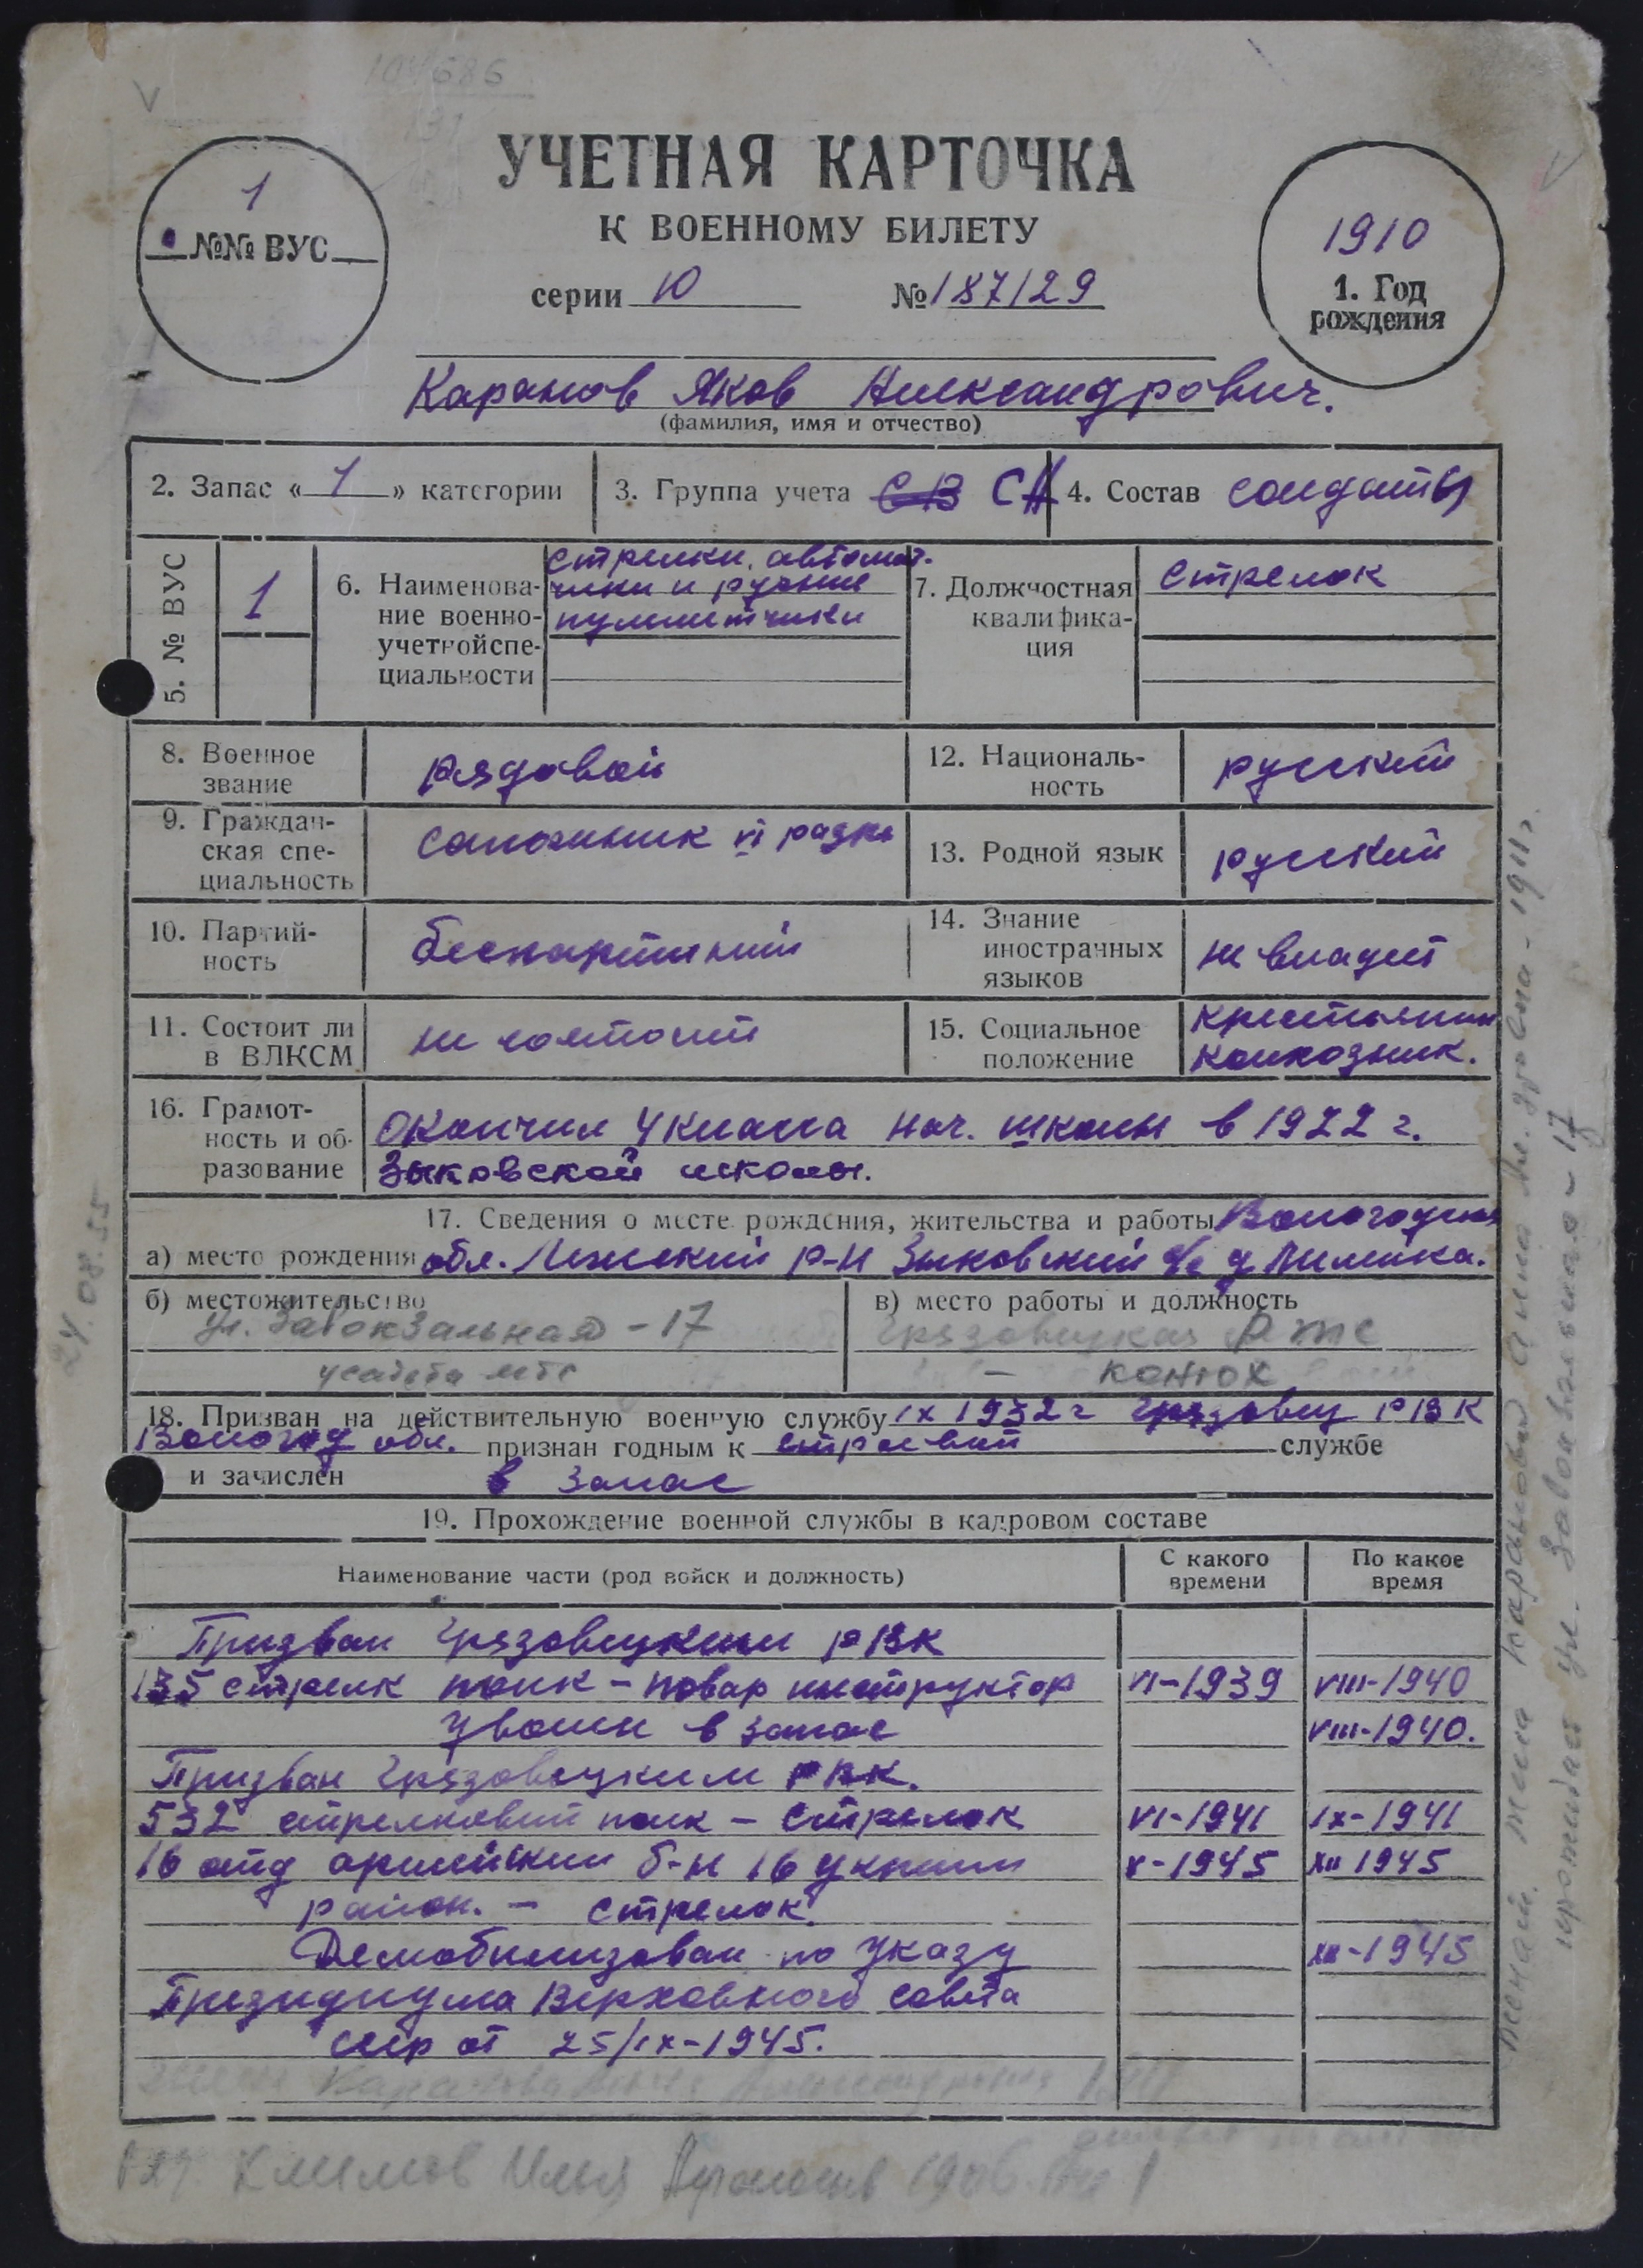 104686
УЧЕТНАЯ КАРТОЧКА
К ВОЕННОМУ БИЛЕТУ
серии Ю №187129
1
№№ ВУС
1910
1. Год
рождения
Каранов Яков Александрович.
(фамилия, имя и отчество)
2. Запас « 1 » категории
3. Группа учета СВ СА
4. Состав солдаты
5. № ВУС
1
6. Наименова-
ние военно-
учетной спе-
циальности
стрелки, автомат-
чики и ручные
пулеметчики
7. Должностная
квалифика-
ция
Стрелок
8. Военное
звание
рядовой
12. Националь-
ность
русский
9. Граждан-
ская спе-
циальность
сапожник VI разр.
13. Родной язык
русский
10. Партий-
ность
беспартийный
14. Знание
иностранных
языков
не владеет
11. Состоит ли
в ВЛКСМ
не состоит
15. Социальное
положение
крестьянин
колхозник.
16. Грамот-
ность и об-
разование
окончил 4 класса нач. школы в 1922 г.
Зыковской школы.
17. Сведения о месте рождения, жительства и работы Вологодская
а) место рождения обл. Лежский р-н Зыковский с/с д
б) местожительство
ул. Завокзальная - 17
усадьба мтс
в) место работы и должность
Грязовецкая РТС
- конюх
18. Призван на действительную военную службу IX 1932 г Грязовец РВК
Вологод обл. признан годным к строевой службе
и зачислен в запас
19. Прохождение военной службы в кадровом составе
Наименование части (род войск и должность)
С какого
времени
По какое
время
Призван Грязовецким РВК
135 стрелк полк - повар инструктор VI-1939 VIII-1940
Уволен в запас VIII-1940.
Призван Грязовецким РВК.
532 стрелковый полк - стрелок VI-1941 IX-1941
16 отд армейский б-н 16 укреп V-1945 XII 1945
район. - стрелок.
Демобилизован по указу XII-1945
Президиума Верховного совета
СССР от 25/IX-1945.
Климов Илья 1906
24.08.55
жена Каранова Анна Ал. - 1911 г.
проживает ул. Завокзальная - 17